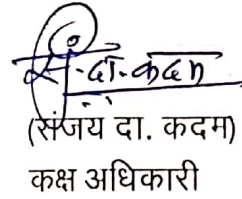 सं. दा. कदम
(संजय दा. कदम)
कक्ष अधिकारी